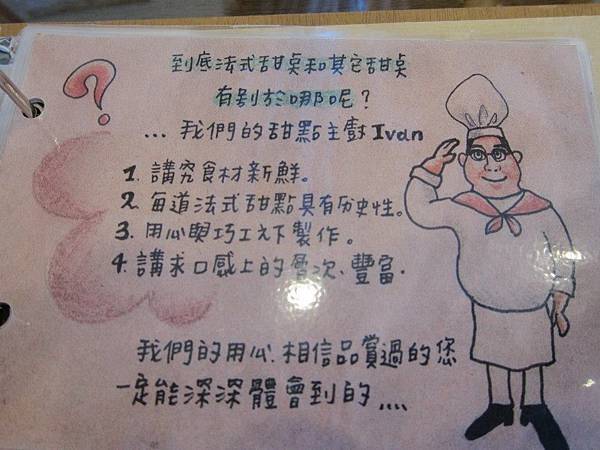 ?
到底法式甜桌和其它甜桌
有别於哪呢？
... 我們的甜點主廚 Ivan
1. 講究食材新鮮。
2. 每道法式甜點具有历史性。
3. 用心與巧工下製作。
4. 講求口感上的層次、豐富.
我們的用心.相信品賞過的您
一定能深深體會到的....